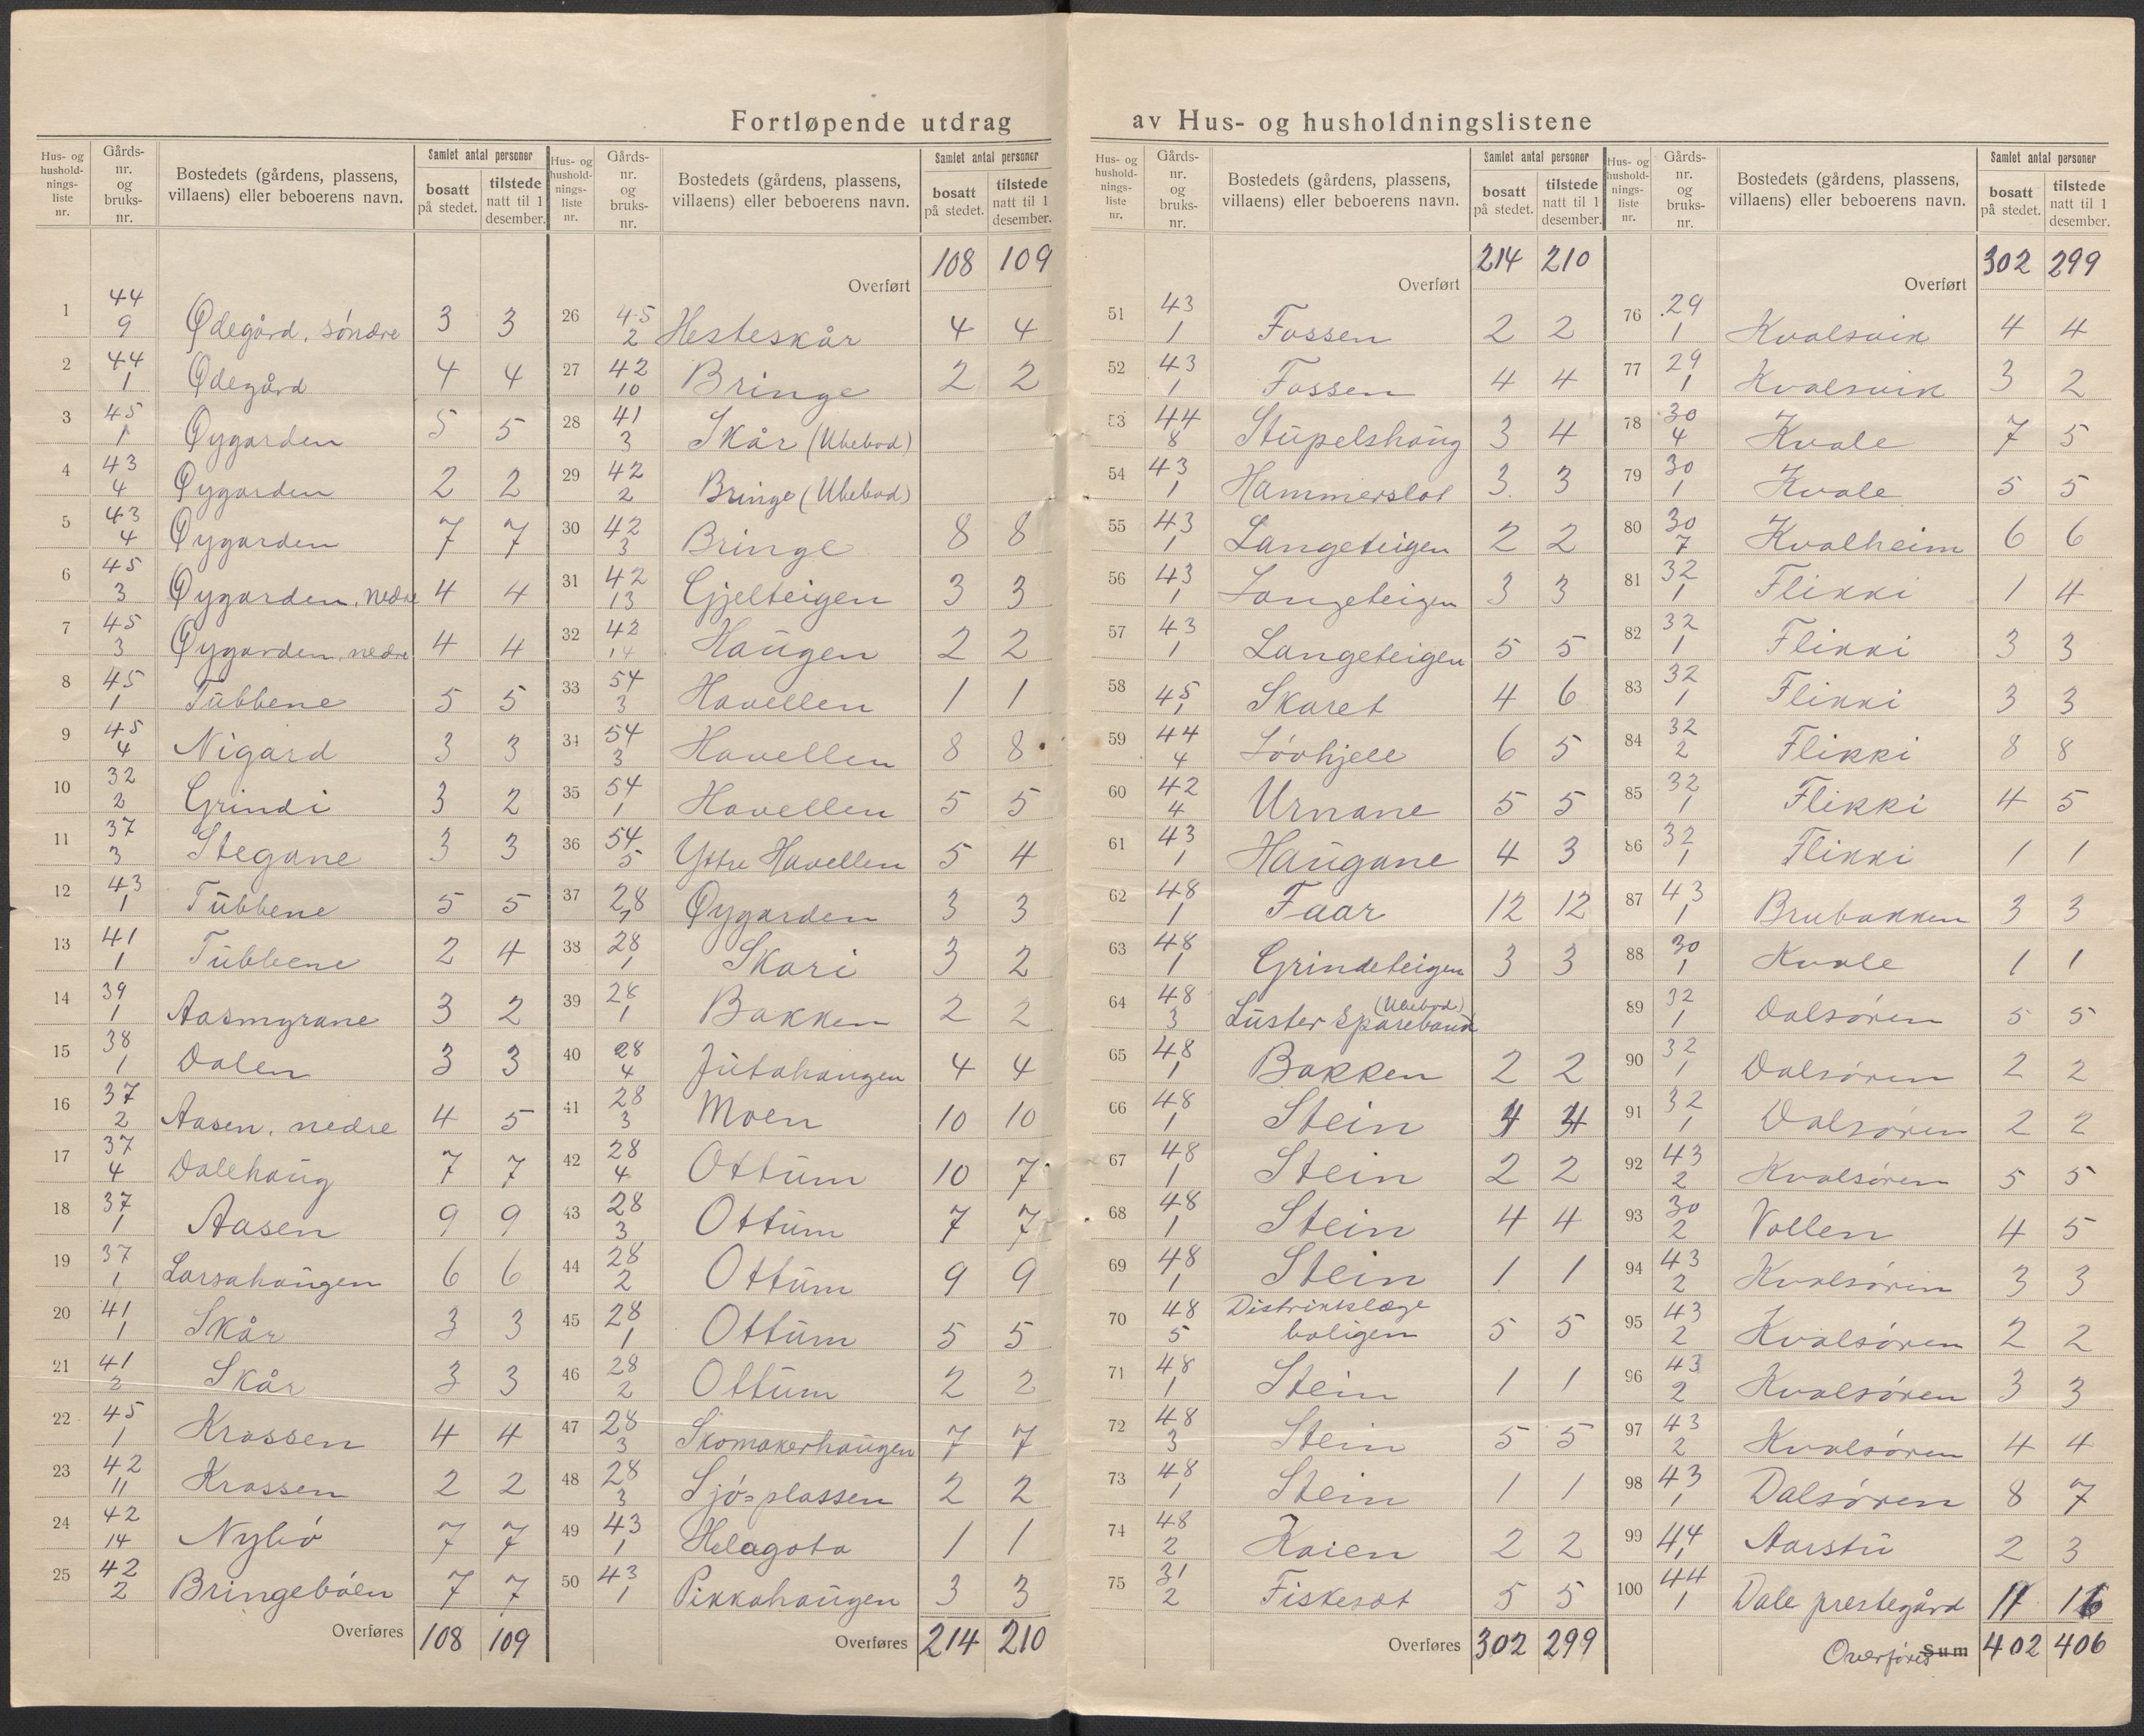 Fortløpende utdrag av Hus- og husholdningslistene
Hus- og husholdnings- liste nr. | Gårds- nr. og bruks- nr. | Bostedets (gårdens, plassens, villaens) eller beboerens navn. | Samlet antal personer | bosatt på stedet. | tilstede natt til 1 desember.
1 44/9 Ødegård, söndre 3 3
2 44/1 Ødegård 4 4
3 45/1 Øygarden 5 5
4 43/4 Øygarden 2 2
5 43/4 Øygarden 7 7
6 45/3 Øygarden, nedre 4 4
7 45/3 Øygarden, nedre 4 4
8 45/1 Tubbene 5 5
9 45/4 Nigard 3 3
10 32/2 Grindi 3 2
11 37/3 Stegane 3 3
12 43/1 Tubbene 5 5
13 41/1 Tubbene 2 4
14 39/1 Aasmyrane 3 2
15 38/1 Dalen 3 3
16 37/2 Aasen, nedre 4 5
17 37/4 Dalehaug 7 7
18 37/1 Aasen 9 9
19 37/1 Larsahaugen 6 6
20 41/1 Skår 3 3
21 41/2 Skår 3 3
22 45/1 Krossen 4 4
23 42/11 Krossen 2 2
24 42/14 Nybö 7 7
25 42/2 Bringebøen 7 7
Overføres 108 109
Hus- og husholdnings- liste nr. | Gårds- nr. og bruks- nr. | Bostedets (gårdens, plassens, villaens) eller beboerens navn. | Samlet antal personer | bosatt på stedet. | tilstede natt til 1 desember.
Overført 108 109
26 45/2 Hesteskår 4 4
27 42/10 Bringe 2 2
28 41/3 Skår (Ubebod)
29 42/2 Bringe (Ubebod)
30 42/3 Bringe 8 8
31 42/13 Gjelteigen 3 3
32 42/14 Haugen 2 2
33 54/3 Havellen 1 1
34 54/3 Havellen 8 8
35 54/1 Havellen 5 5
36 54/5 Ytre Havellen 5 4
37 28/1 Øygarden 3 3
38 28/1 Skari 3 2
39 28/1 Bakken 2 2
40 28/4 Jutahaugen 4 4
41 28/3 Moen 10 10
42 28/4 Ottum 10 7
43 28/3 Ottum 7 7
44 28/2 Ottum 9 9
45 28/1 Ottum 5 5
46 28/2 Ottum 2 2
47 28/3 Skomakerhaugen 7 7
48 28/3 Sjö=plassen 2 2
49 43/1 Helagota 1 1
50 43/1 Pikkahaugen 3 3
Overføres 214 210
Hus- og husholdnings- liste nr. | Gårds- nr. og bruks- nr. | Bostedets (gårdens, plassens, villaens) eller beboerens navn. | Samlet antal personer | bosatt på stedet. | tilstede natt til 1 desember.
Overført 214 210
51 43/1 Fossen 2 2
52 43/1 Fossen 4 4
53 44/8 Stupelshaug 3 4
54 43/1 Hammerslot 3 3
55 43/1 Langeteigen 2 2
56 43/1 Langeteigen 3 3
57 43/1 Langeteigen 5 5
58 45/1 Skaret 4 6
59 44/4 Lövhjell 6 5
60 42/4 Urnane 5 5
61 43/1 Haugane 4 3
62 48/1 Faar 12 12
63 48/1 Grindeteigen 3 3
64 48/3 Luster Sparebank (Ubebod)
65 48/1 Bakken 2 2
66 48/1 Stein 4 4
67 48/1 Stein 2 2
68 48/1 Stein 4 4
69 48/1 Stein 1 1
70 48/5 Distriktslæge boligen 5 5
71 48/1 Stein 1 1
72 48/3 Stein 5 5
73 48/1 Stein 1 1
74 48/2 Kaien 2 2
75 31/2 Fiskesæt 5 5
Overføres 302 299
Hus- og husholdnings- liste nr. | Gårds- nr. og bruks- nr. | Bostedets (gårdens, plassens, villaens) eller beboerens navn. | Samlet antal personer | bosatt på stedet. | tilstede natt til 1 desember.
Overført 302 299
76 29/1 Kvalsvik 4 4
77 29/1 Kvalsvik 3 2
78 30/4 Kvale 7 5
79 30/1 Kvale 5 5
80 30/7 Kvalheim 6 6
81 32/1 Flikki 1 4
82 32/1 Flikki 3 3
83 32/1 Flikki 3 3
84 32/2 Flikki 8 8
85 32/1 Flikki 4 5
86 32/1 Flikki 1 1
87 43/1 Brubakken 3 3
88 30/1 Kvale 1 1
89 32/1 Dalsøren 5 5
90 32/1 Dalsøren 2 2
91 32/1 Dalsøren 2 2
92 43/2 Kvalsøren 5 5
93 30/2 Vollen 4 5
94 43/2 Kvalsøren 3 3
95 43/2 Kvalsøren 2 2
96 43/2 Kvalsøren 3 3
97 43/2 Kvalsøren 4 4
98 43/1 Dalsøren 8 7
99 44/1 Aarstu 2 3
100 44/1 Dale prestegård 11 16
Overføres Sum 402 406